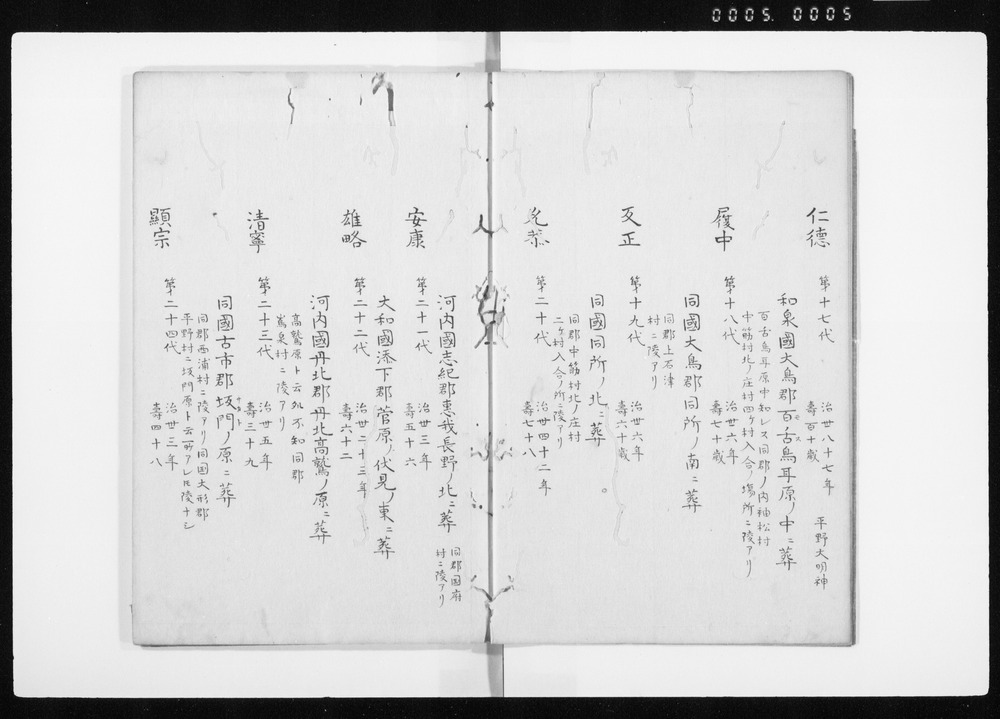 0005. 0005
仁德
第十七代
治世八十七年
壽百十歲
平野大明神
和泉國大鳥郡百舌鳥耳原ノ中ニ葬
百舌鳥耳原中知レス同郡ノ内神松村
中筋村北ノ庄村四ケ村入合ノ場所ニ陵アリ
履中
第十八代
治世六年
壽七十歲
同國大鳥郡同所ノ南ニ葬
同郡上石津
村ニ陵アリ
反正
第十九代
治世六年
壽六十歲
同國同所ノ北ニ葬
同郡中筋村北ノ庄村
二ケ村入合ノ所ニ陵アリ
允恭
第二十代
治世四十二年
壽七十八
河内國志紀郡惠我長野ノ北ニ葬
同郡國府
村ニ陵アリ
安康
第二十一代
治世三年
壽五十六
大和國添下郡菅原ノ伏見ノ東ニ葬
雄略
第二十二代
治世二十三年
壽六十二
河内國丹北郡丹北高鷲ノ原ニ葬
高鷲原ト云所不知同郡
嶌泉村ニ陵アリ
清寧
第二十三代
治世五年
壽三十九
同國古市郡坂門ノ原ニ葬
同郡西浦村ニ陵アリ同国大形郡
平野村ニ坂門原ト云所アレ𪜈陵ナシ
顯宗
第二十四代
治世三年
壽四十八